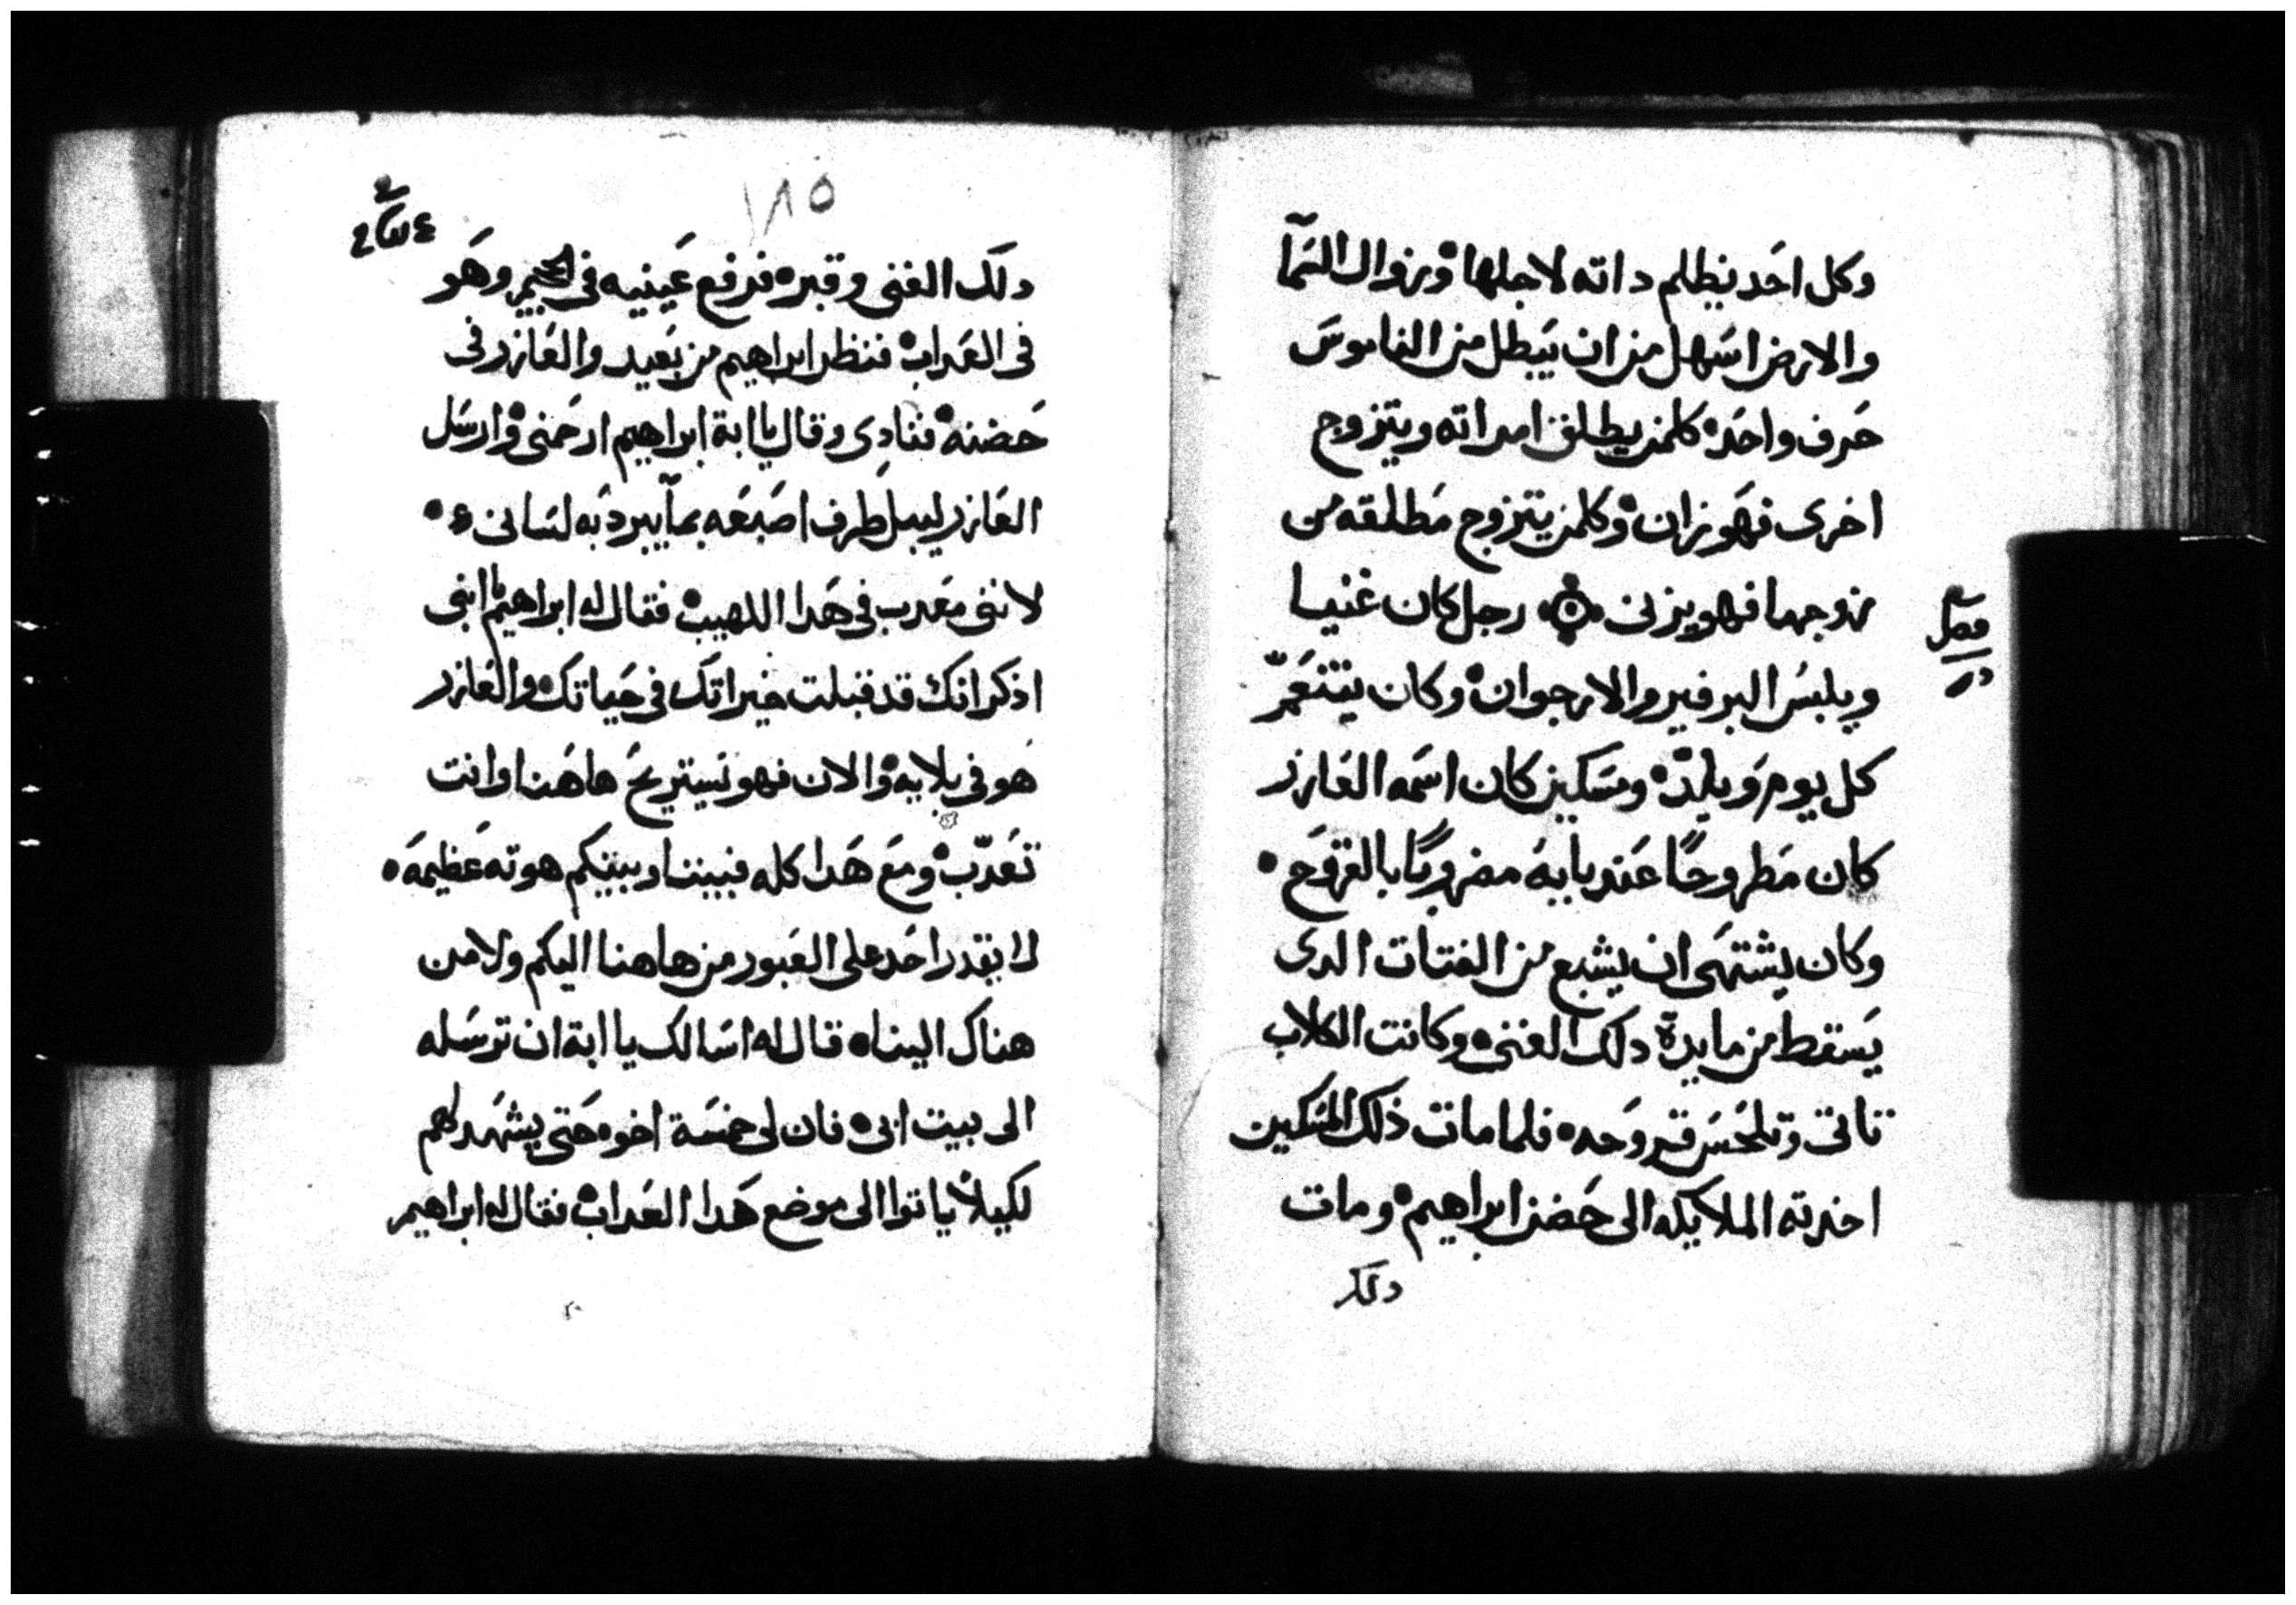 وكل احَد يظلم داته لاجلها ۰ وزوال السَمآ
والارض اسَهل من ان يَبطل من الناموسَ
حَرف واحَد ۰ كلمن يطلق امراته ويتزوج
اخرى فهَو زان ۰ وكلمن يتزوج مَطلقه من
زوجها فهو يزنى ۰ رجل كان غنيا
فصل
ويلبسُ البرفير والارجوان ۰ وكان يتنعَمّ
كل يوم وَيلدّ ۰ ومسَكين كان اسَمه العَازر
كان مَطروحًا عَند بابهُ مضروبًا بالقروَح ۰
وكان يشتهَى ان يشبع من الفتات الدى
يَسَقط من مايدة دلك الغنى ۰ وكانت الكلاب
تاتى وتلحَسَ قروَحه ۰ فلما مات ذلك المسَكين
اخدته الملايكه الى حَضن ابراهيم ۰ ومات
دلك
١٨٥
دلَك الغنى وقبر ۰ فرفع عَينيه فى الجحيم وهَو
فى العَداب ۰ فنظر ابراهيم من بَعيد والعَازر فى
حَضنه ۰ فنادِى وقال يا ابة ابراهيم ارحَمنى ۰ وارسَل
العَازر ليبل طرف اصَبَعَه بمآ يبرد بَه لسَانى ۰
لاننى معَدب فى هَدا اللهيب ۰ فقال له ابراهيم يا ابنى
اذكر انَك قد قبلت خيراتَك فى حَياتك ۰ والعَازر
هَو فى بلايه ۰ والان فهو يَستريحَ هاهَنا وانت
تعَدّب ۰ ومَع هَدا كله فبيننا وبينكم هوته عَظيمَه ۰
لا يقدر احَد على العَبور من هاهنا اليكم ولا من
هناك الينا ۰ قال له اسَالَك يا ابة ان ترسَله
الى بيت ابى ۰ فان لى خمسَة اخوه حَتى يشهَد لهم
لكيلا ياتوا الى موضع هَدا العَداب ۰ فقال له ابراهيم